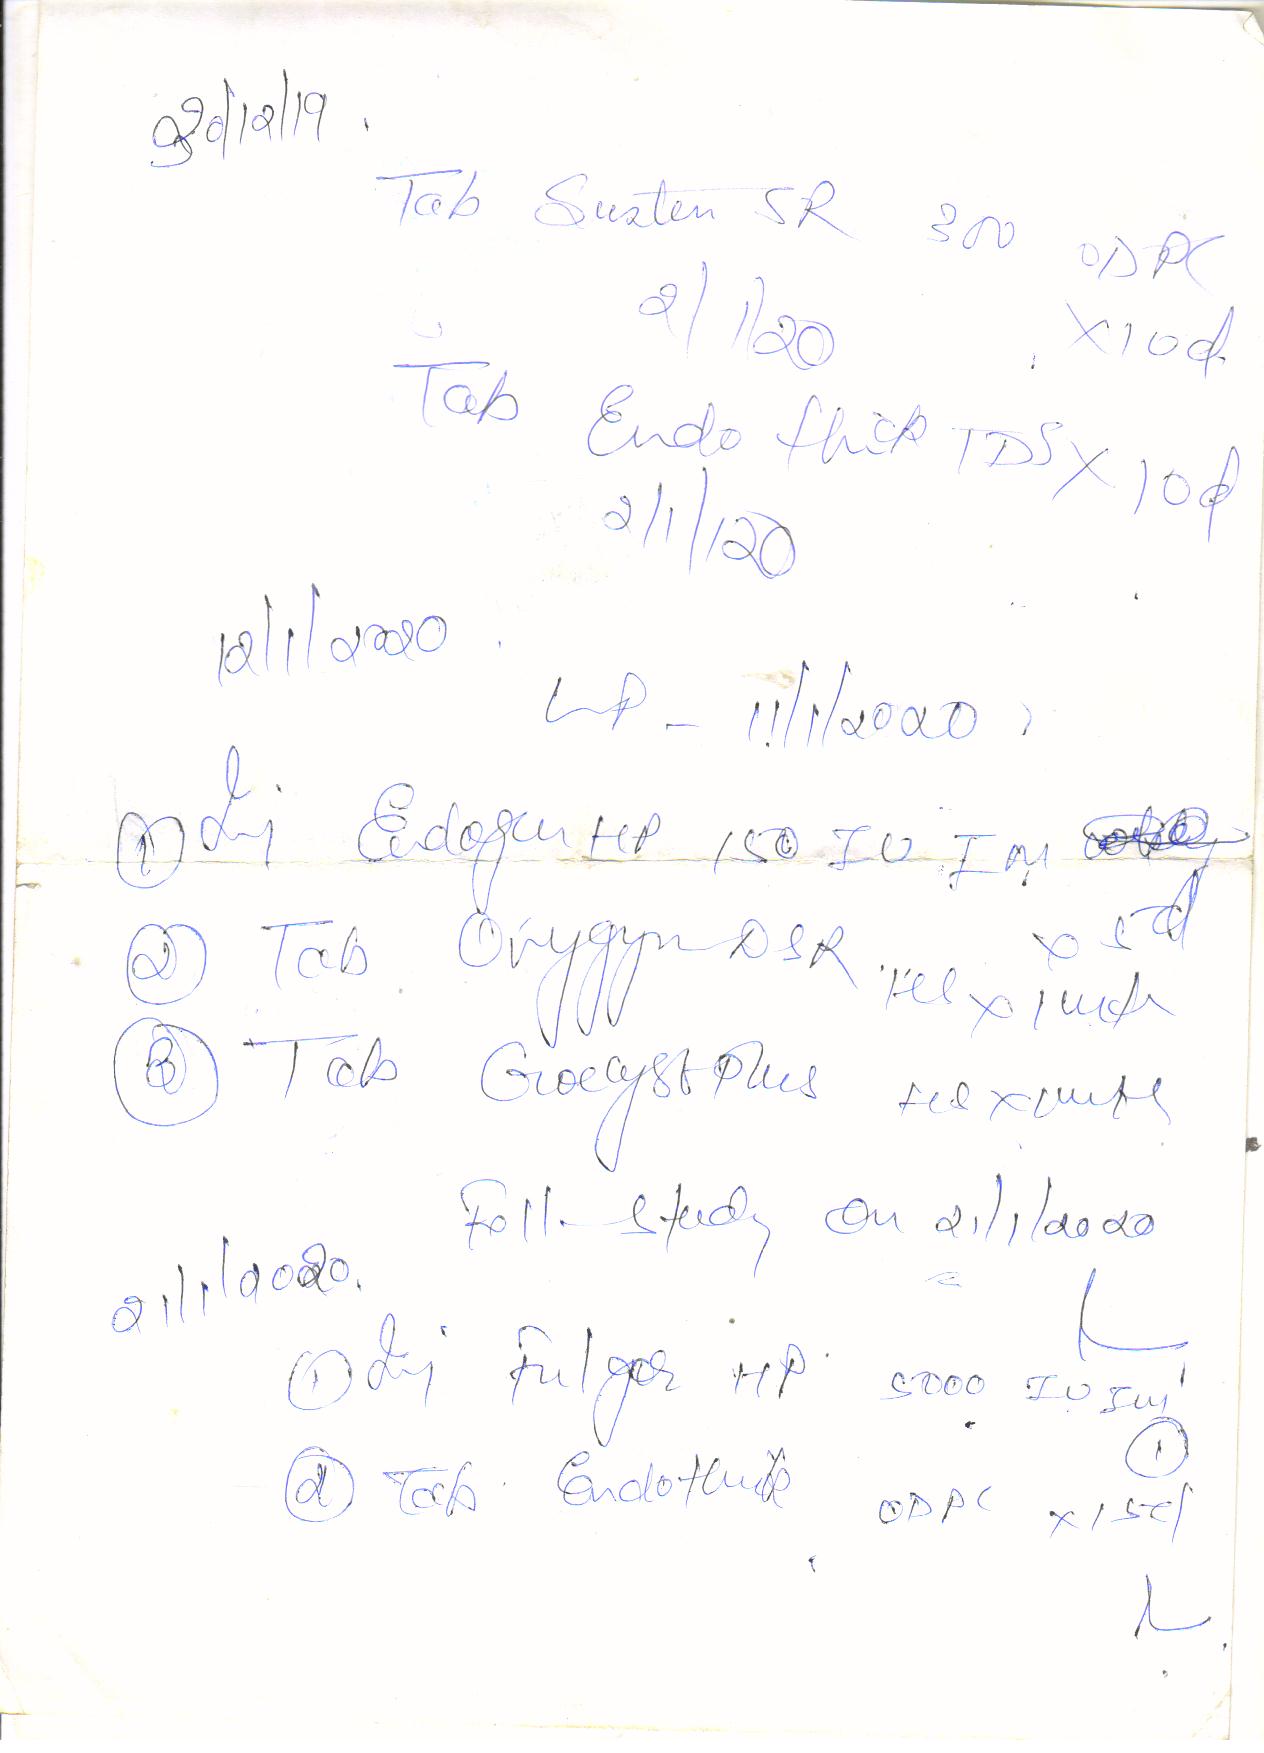 30/12/19.
Tab Susten SR 300 ODPC
2/1/20 X10d
Tab Endo thick TDS X 10d
2/1/120
12/1/2020
LMP - 11/1/2020
① Inj Endogen HP 150 IU IM
x 5d
② Tab Ovygyn DSR HS x 1 mth
③ Tab Goecyst Plus HS x 1 mth
Foll-study on 21/1/2020
21/1/2020.
① Inj Fulgor HP 5000 IU Im
①
② Tab. Endothick ODPC x 15d